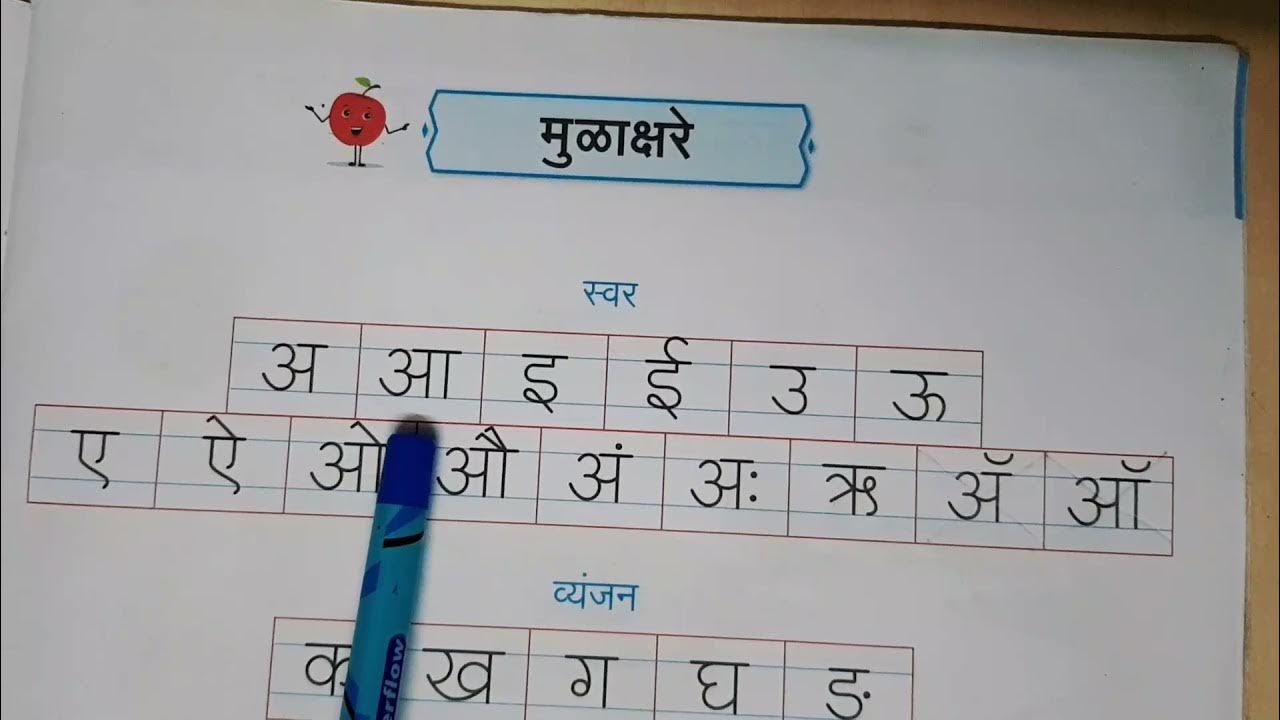 मुळाक्षरे
स्वर
अ आ इ ई उ ऊ
ए ऐ ओ औ अं अः ऋ ॲ ऑ
व्यंजन
क ख ग घ ङ
erflow